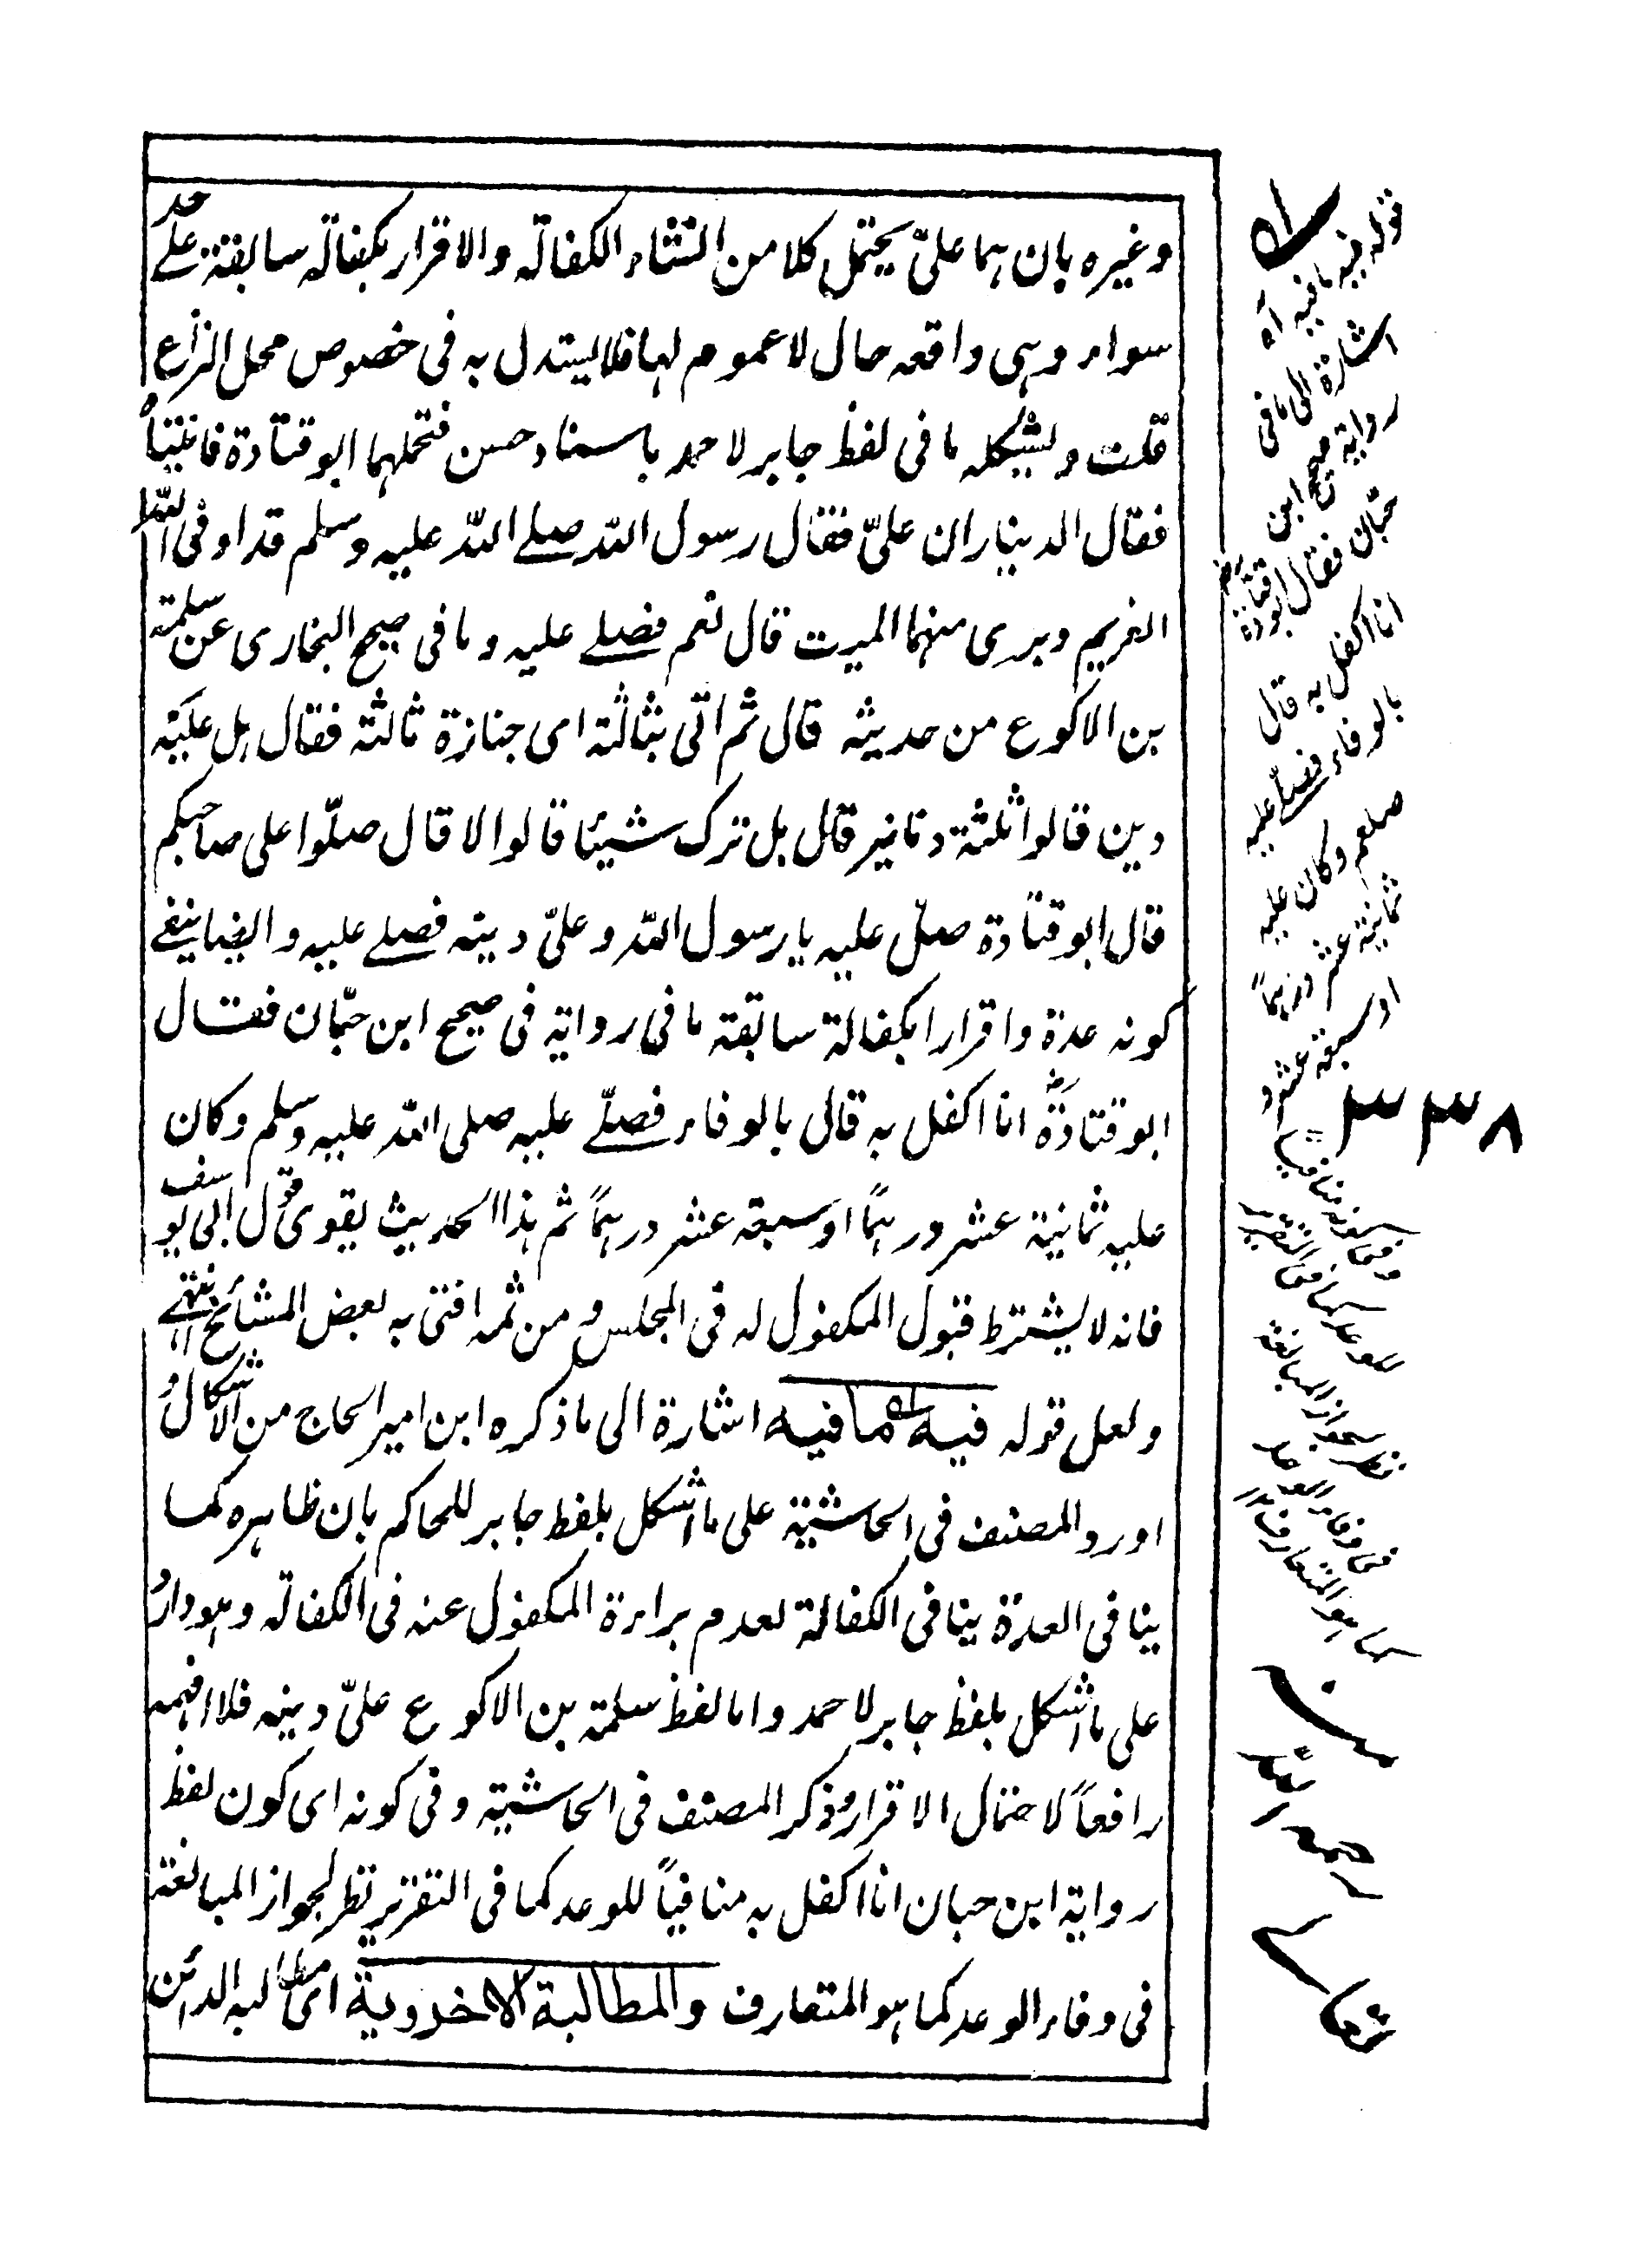 وغيره بان هما علىّ يحتمل كلا من انشاء الكفالة والاقرار بكفالة سابقة على حد
سواء وهى واقعه حال لا عموم لها فلا يستدل به فى خصوص محل النزاع
قلت ويشكله ما فى لفظ جابر لاحمد باسناد حسن فتحملهما ابو قتادة فاتيناه
فقال الديناران علىّ فقال رسول الله صلے الله عليه وسلم قد اوفى الله
الغريم وبرى منهما الميت قال نعم فصلے عليه وما فى صحيح البخارى عن سلمة
بن الاكوع من حديثه قال ثم اتى بثالثة اى جنازة ثالثة فقال هل عليه
دين قالوا ثلثة دنانير قال هل ترك شيئا قالوا لا قال صلّوا على صاحبكم
قال ابو قتادة صلّ عليه يا رسول الله وعلىّ دينه فصلے عليه وايضا ينفے
كونه عدة واقرارا بكفالة سابقة ما فى رواية فى صحيح ابن حبّان فقال
ابو قتادة انا اكفل به قال بالوفاء فصلّے عليه صلى الله عليه وسلم وكان
عليه ثمانية عشر درهمًا او سبعة عشر درهمًا ثم هذا الحديث يقوى قول ابى يوسف
فانه لا يشترط قبول المكفول له فى المجلس ومن ثمه افتى به بعض المشائخ انتهى
ولعل قوله فيه ما فيه اشارة الى ما ذكره ابن امير الحاج من الاشكال و
اورد المصنف فى الحاشية على ما اشكل بلفظ جابر للحاكم بان ظاهره كما
ينافى العدة ينافى الكفالة لعدم براءة المكفول عنه فى الكفالة وهو وارد
على ما اشكل بلفظ جابر لاحمد واما لفظ سلمة بن الاكوع علىّ دينه فلا افهمه
رافعاً لاحتمال الاقرار وذكر المصنف فى الحاشية وفى كونه اى كون لفظ
رواية ابن حبان انا اكفل به منافياً للوعد كما فى التقرير نظر لجواز المبالغة
فى وفاء الوعد كما هو المتعارف والمطالبة الاخروية اى مطالبه الدائن
قوله فيه ما فيه آه
اشارة الى ما فى
رواية صحيح ابن
حبّان فقال ابو قتادة
انا اكفل به قال
بالوفاء فصلّے عليه
صلعم وكان عليه
ثمانية عشر درهمًا
او سبعة عشر و
فى كونه منافياً
للوعد كما فى التقرير
نظر لجواز المبالغة
فى وفاء الوعد
كما هو المتعارف
منه
رحمه الله
تعالى
٣٣٨